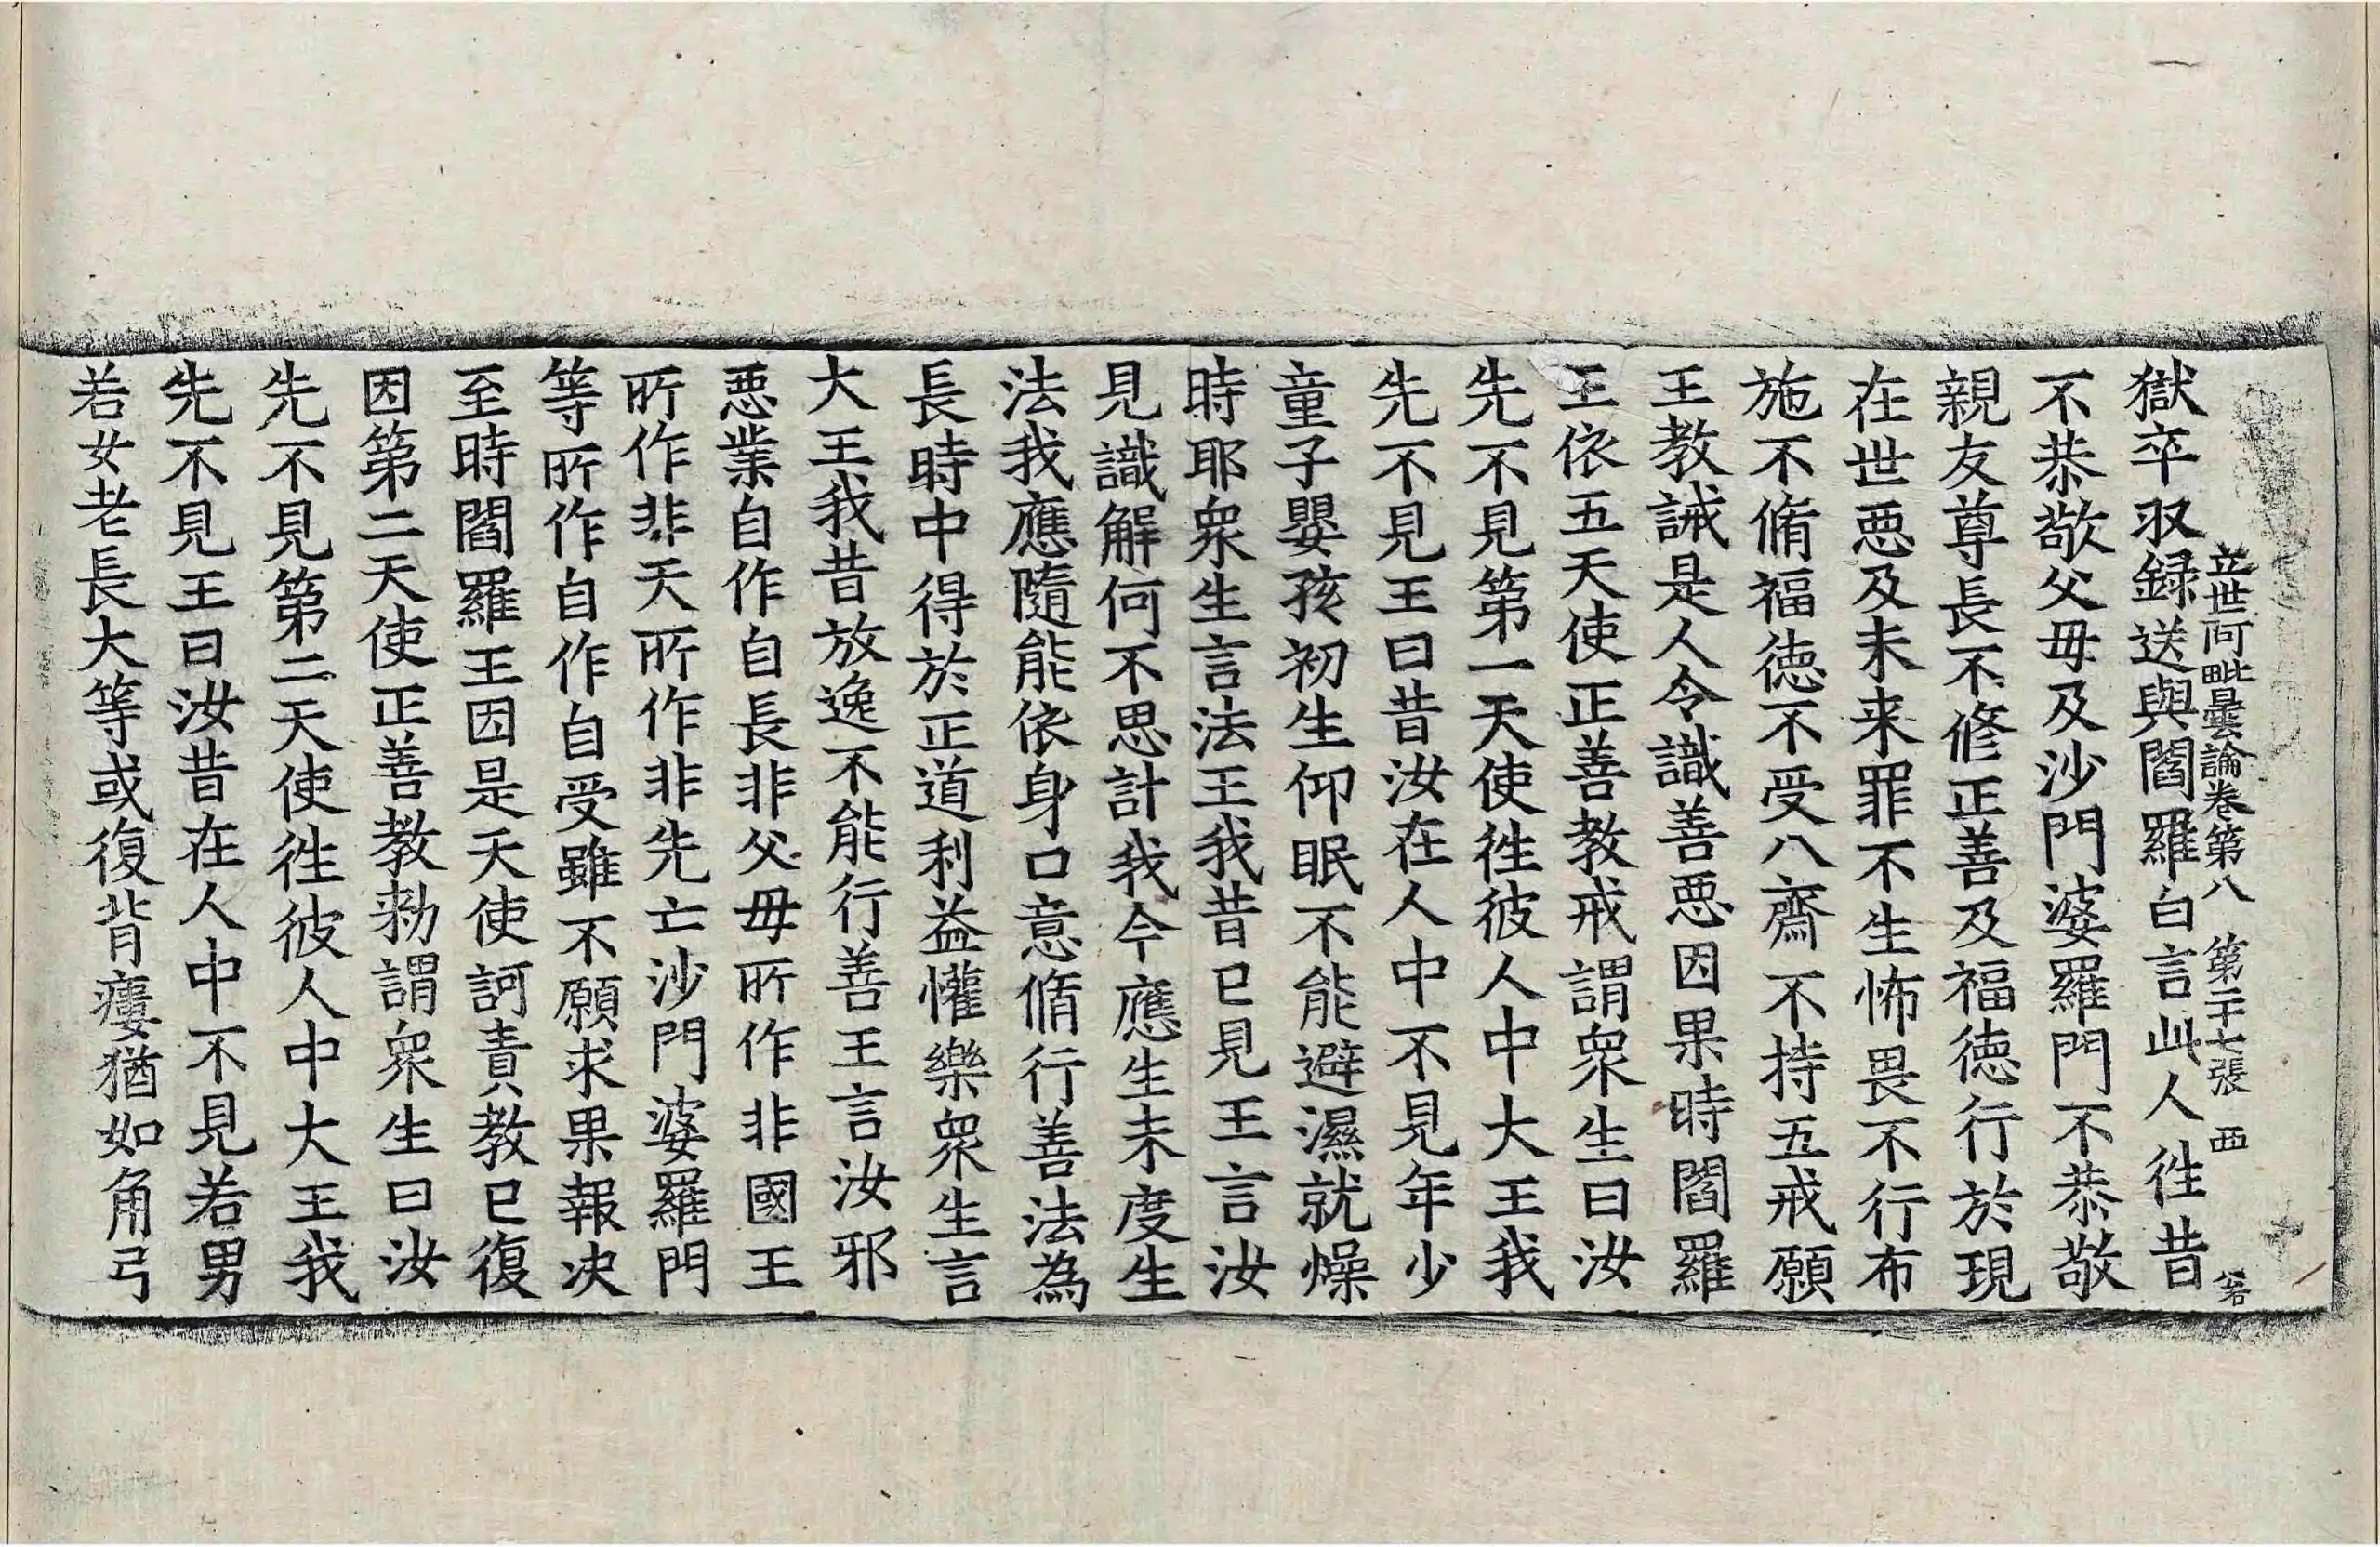 立世阿毗曇論卷第八　第二十七張　西
獄卒収録送與閻羅白言此人徃昔
不恭敬父母及沙門婆羅門不恭敬
親友尊長不修正善及福徳行於現
在世惡及未来罪不生怖畏不行布
施不脩福徳不受八齋不持五戒願
王教誡是人令識善惡因果時閻羅
王依五天使正善教戒謂衆生曰汝
先不見第一天使徃彼人中大王我
先不見王曰昔汝在人中不見年少
童子嬰孩初生仰眠不能避濕就燥
時耶衆生言法王我昔已見王言汝
見識解何不思計我今應生未度生
法我應隨能依身口意脩行善法為
長時中得於正道利益懽樂衆生言
大王我昔放逸不能行善王言汝邪
惡業自作自長非父母所作非國王
所作非天所作非先亡沙門婆羅門
等所作自作自受雖不願求果報决
至時閻羅王因是天使訶責教已復
因第二天使正善教勑謂衆生曰汝
先不見第二天使徃彼人中大王我
先不見王曰汝昔在人中不見若男
若女老長大等或復背瘻猶如角弓